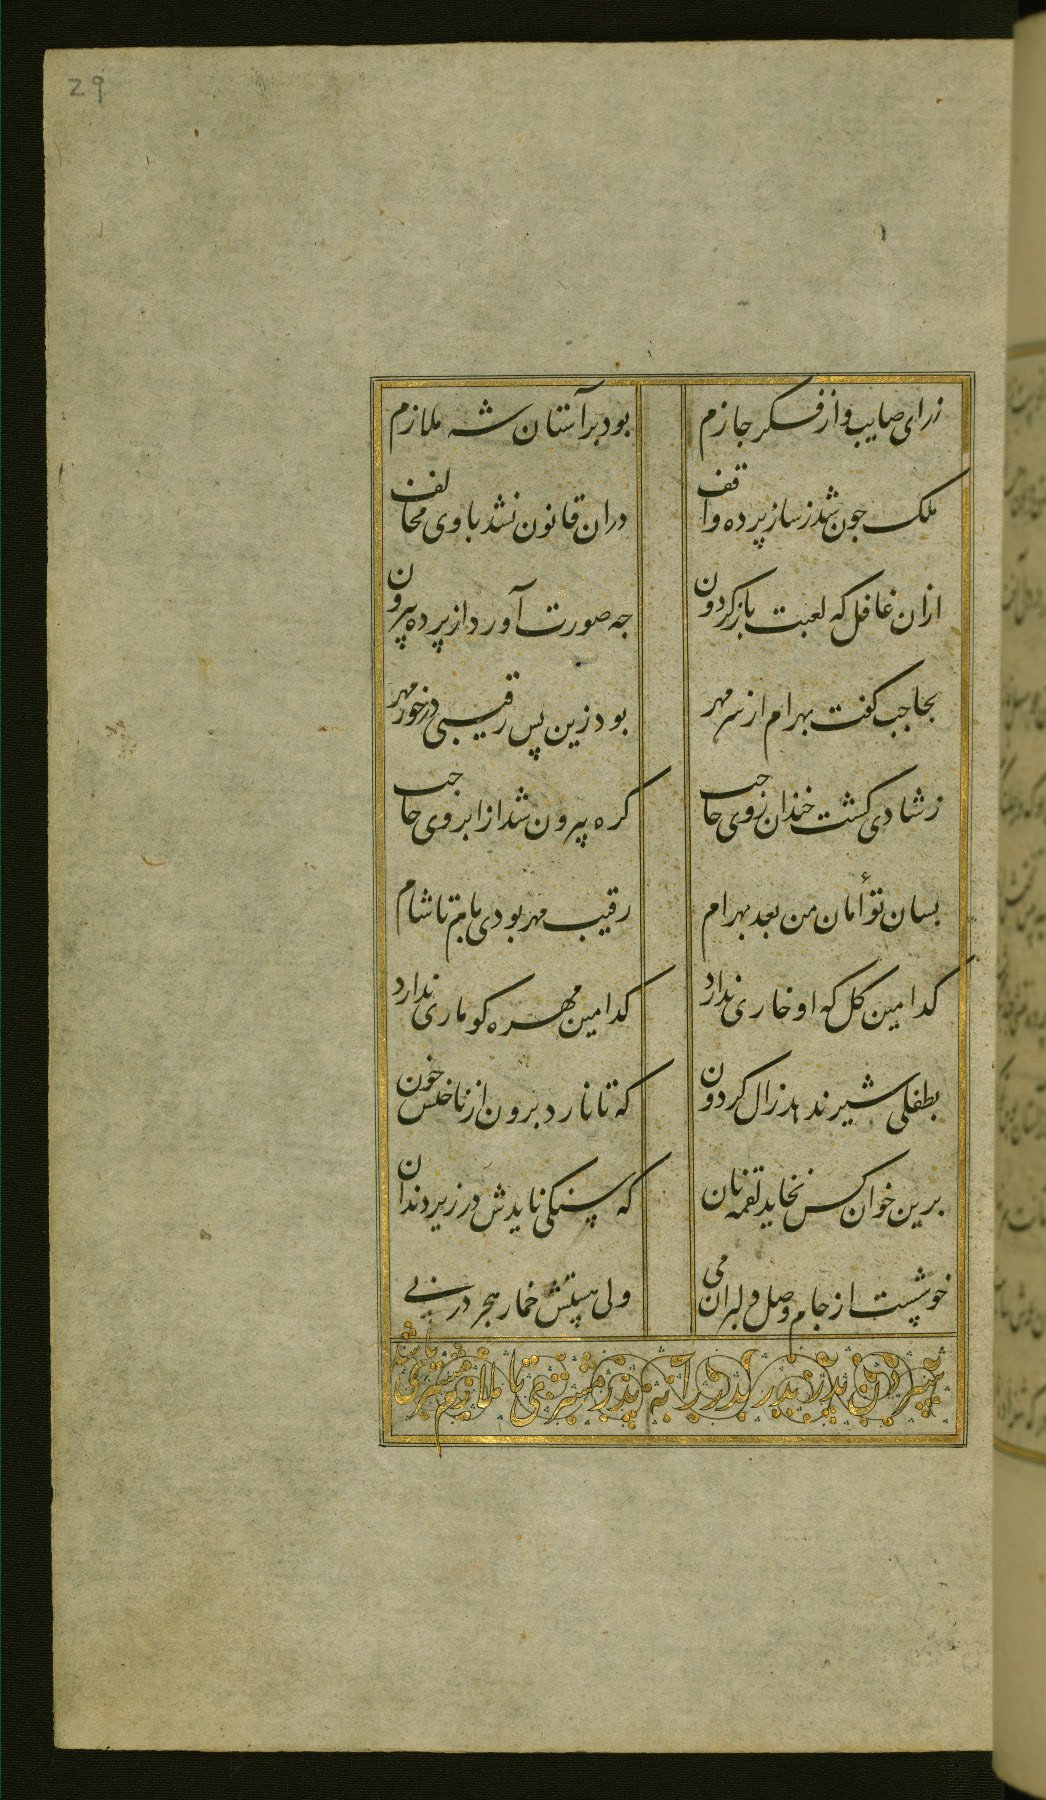 29
زرای صایب و از فکر جازم بود بر آستان شه ملازم
ملک جون شد ز ساز پرده واقف دران قانون نشد با وی مخالف
ازان غافل که لعبت باز کردون جه صورت آورد از پرده بیرون
بحاجب کفت بهرام از سر مهر بود زین پس رقیبی در خور مهر
ز شادی کشت خندان روی حاجب کره بیرون شد از ابروی حاجب
بسان توأمان من بعد بهرام رقیب مهر بودی بام تا شام
کدامین کل که او خاری ندارد کدامین مهره کو ماری ندارد
بطفلی شیر ندهد زال کردون که تا نارد برون از ناخنش خون
برین خوان کس نخاید لقمه نان که سنکی نایدش در زیر دندان
خوشست از جام وصل دلبران می ولی هستش خمار هجر در پی
سپردن بدر بدر را به مشتری تا ملازم مشتری باشد